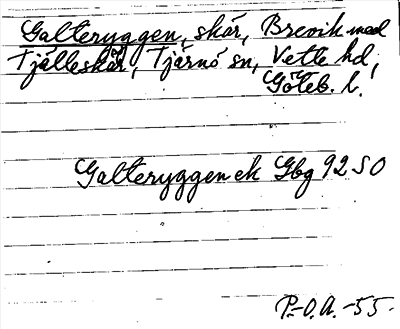 Galteryggen, skär, Brevik med
Tjälleskär, Tjärnö sn, Vette hd,
Göteb. l.
Galteryggen ek Gbg 92 SO
P.-O.A. -55-